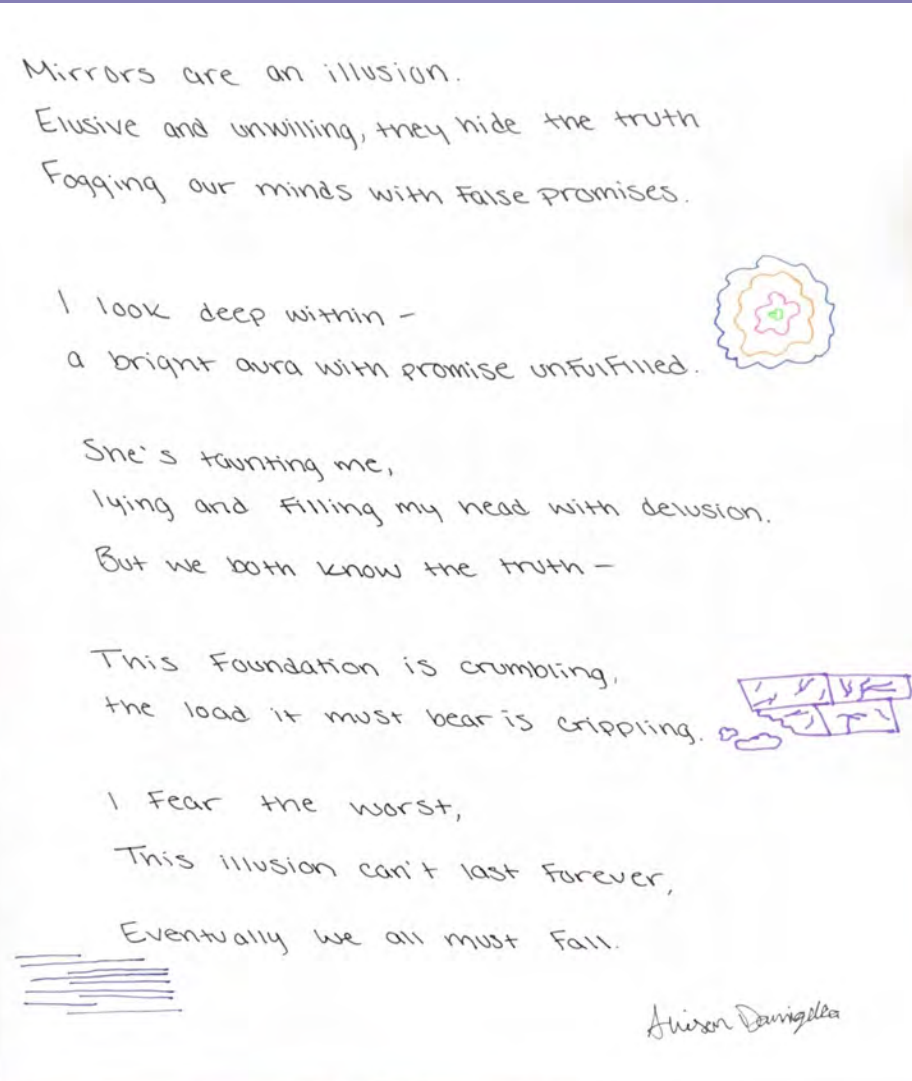 Mirrors are an illusion.
Elusive and unwilling, they hide the truth
Fogging our minds with false promises.
I look deep within -
a bright aura with promise unfulfilled.
She's taunting me,
lying and filling my head with delusion.
But we both know the truth -
This foundation is crumbling,
the load it must bear is crippling.
I fear the worst,
This illusion can't last forever,
Eventually we all must fall.